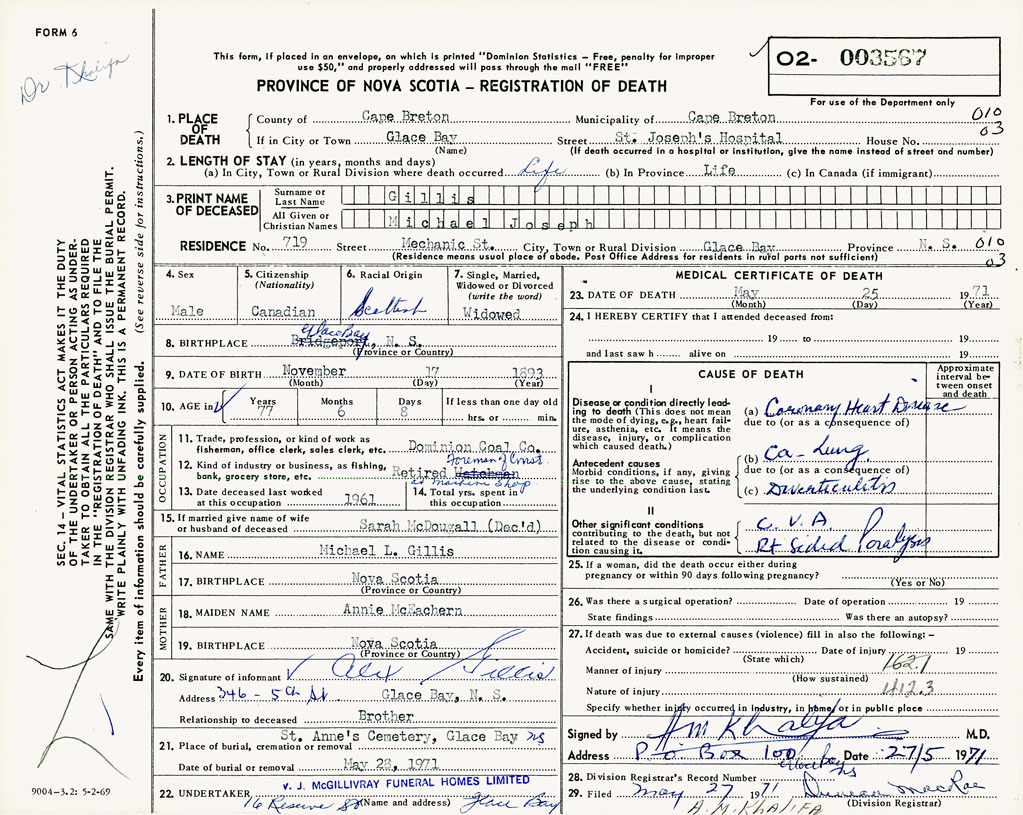 FORM 6
Dr Khalifa
This form, if placed in an envelope, on which is printed "Dominion Statistics – Free, penalty for improper
use $50," and properly addressed will pass through the mail "FREE"
02- 003567
For use of the Department only
PROVINCE OF NOVA SCOTIA – REGISTRATION OF DEATH
1. PLACE OF DEATH
County of Cape Breton Municipality of Cape Breton 010
If in City or Town Glace Bay Street St. Joseph's Hospital House No. 03
(Name) (If death occurred in a hospital or institution, give the name instead of street and number)
2. LENGTH OF STAY (in years, months and days)
(a) In City, Town or Rural Division where death occurred Life (b) In Province Life (c) In Canada (if immigrant)
3. PRINT NAME OF DECEASED
Surname or Last Name Gillis
All Given or Christian Names Michael Joseph
RESIDENCE No. 719 Street Mechanic St. City, Town or Rural Division Glace Bay Province N. S. 010
(Residence means usual place of abode. Post Office Address for residents in rural parts not sufficient) 03
4. Sex
Male
5. Citizenship (Nationality)
Canadian
6. Racial Origin
Scottish
7. Single, Married, Widowed or Divorced (write the word)
Widowed
Glace Bay
8. BIRTHPLACE Bridgeport, N. S.
(Province or Country)
9. DATE OF BIRTH November 17 1893
(Month) (Day) (Year)
10. AGE in Years Months Days If less than one day old
77 6 8 hrs. or min.
OCCUPATION
11. Trade, profession, or kind of work as fisherman, office clerk, sales clerk, etc. Dominion Coal Co.
Foreman of Const.
12. Kind of industry or business, as fishing, bank, grocery store, etc. Retired Watchman
at machine shop
13. Date deceased last worked at this occupation 1961
14. Total yrs. spent in this occupation
15. If married give name of wife or husband of deceased Sarah McDougall (Dec'd)
FATHER
16. NAME Michael L. Gillis
17. BIRTHPLACE Nova Scotia
(Province or Country)
MOTHER
18. MAIDEN NAME Annie McEachern
19. BIRTHPLACE Nova Scotia
(Province or Country)
20. Signature of informant Alex Gillis
Address 346 - 5th St Glace Bay, N. S.
Relationship to deceased Brother
St. Anne's Cemetery, Glace Bay NS
21. Place of burial, cremation or removal
Date of burial or removal May 28, 1971
V. J. McGILLIVRAY FUNERAL HOMES LIMITED
22. UNDERTAKER 16 Reserve St Glace Bay
(Name and address)
MEDICAL CERTIFICATE OF DEATH
23. DATE OF DEATH May 25 1971
(Month) (Day) (Year)
24. I HEREBY CERTIFY that I attended deceased from:
19 to 19
and last saw h alive on 19
CAUSE OF DEATH
Approximate interval between onset and death
I
Disease or condition directly leading to death (This does not mean the mode of dying, e.g., heart failure, asthenia, etc. It means the disease, injury, or complication which caused death.)
(a) Coronary Heart Disease
due to (or as a consequence of)
Antecedent causes
Morbid conditions, if any, giving rise to the above cause, stating the underlying condition last.
(b) Ca - Lung
due to (or as a consequence of)
(c) Diverticulitis
II
Other significant conditions contributing to the death, but not related to the disease or condition causing it.
C. V. A.
Rt Sided Paralysis
25. If a woman, did the death occur either during
pregnancy or within 90 days following pregnancy?
(Yes or No)
26. Was there a surgical operation? Date of operation 19
State findings Was there an autopsy?
27. If death was due to external causes (violence) fill in also the following: –
Accident, suicide or homicide? Date of injury 19
(State which)
Manner of injury 162.1
(How sustained)
Nature of injury 412.3
Specify whether injury occurred in industry, in home, or in public place
Signed by AM Khalifa M.D.
Address P. O. Box 100 Glace Bay NS Date 27/5 1971
28. Division Registrar's Record Number
29. Filed May 27 1971 Duncan MacRae
(Division Registrar)
A. M. KHALIFA
SEC. 14 – VITAL STATISTICS ACT MAKES IT THE DUTY
OF THE UNDERTAKER OR PERSON ACTING AS UNDER-
TAKER TO OBTAIN ALL THE PARTICULARS REQUIRED
IN THE "REGISTRATION OF DEATH" AND TO FILE THE
SAME WITH THE DIVISION REGISTRAR WHO SHALL ISSUE THE BURIAL PERMIT.
WRITE PLAINLY WITH UNFADING INK. THIS IS A PERMANENT RECORD.
Every item of information should be carefully supplied. (See reverse side for instructions.)
9004-3.2: 5-2-69